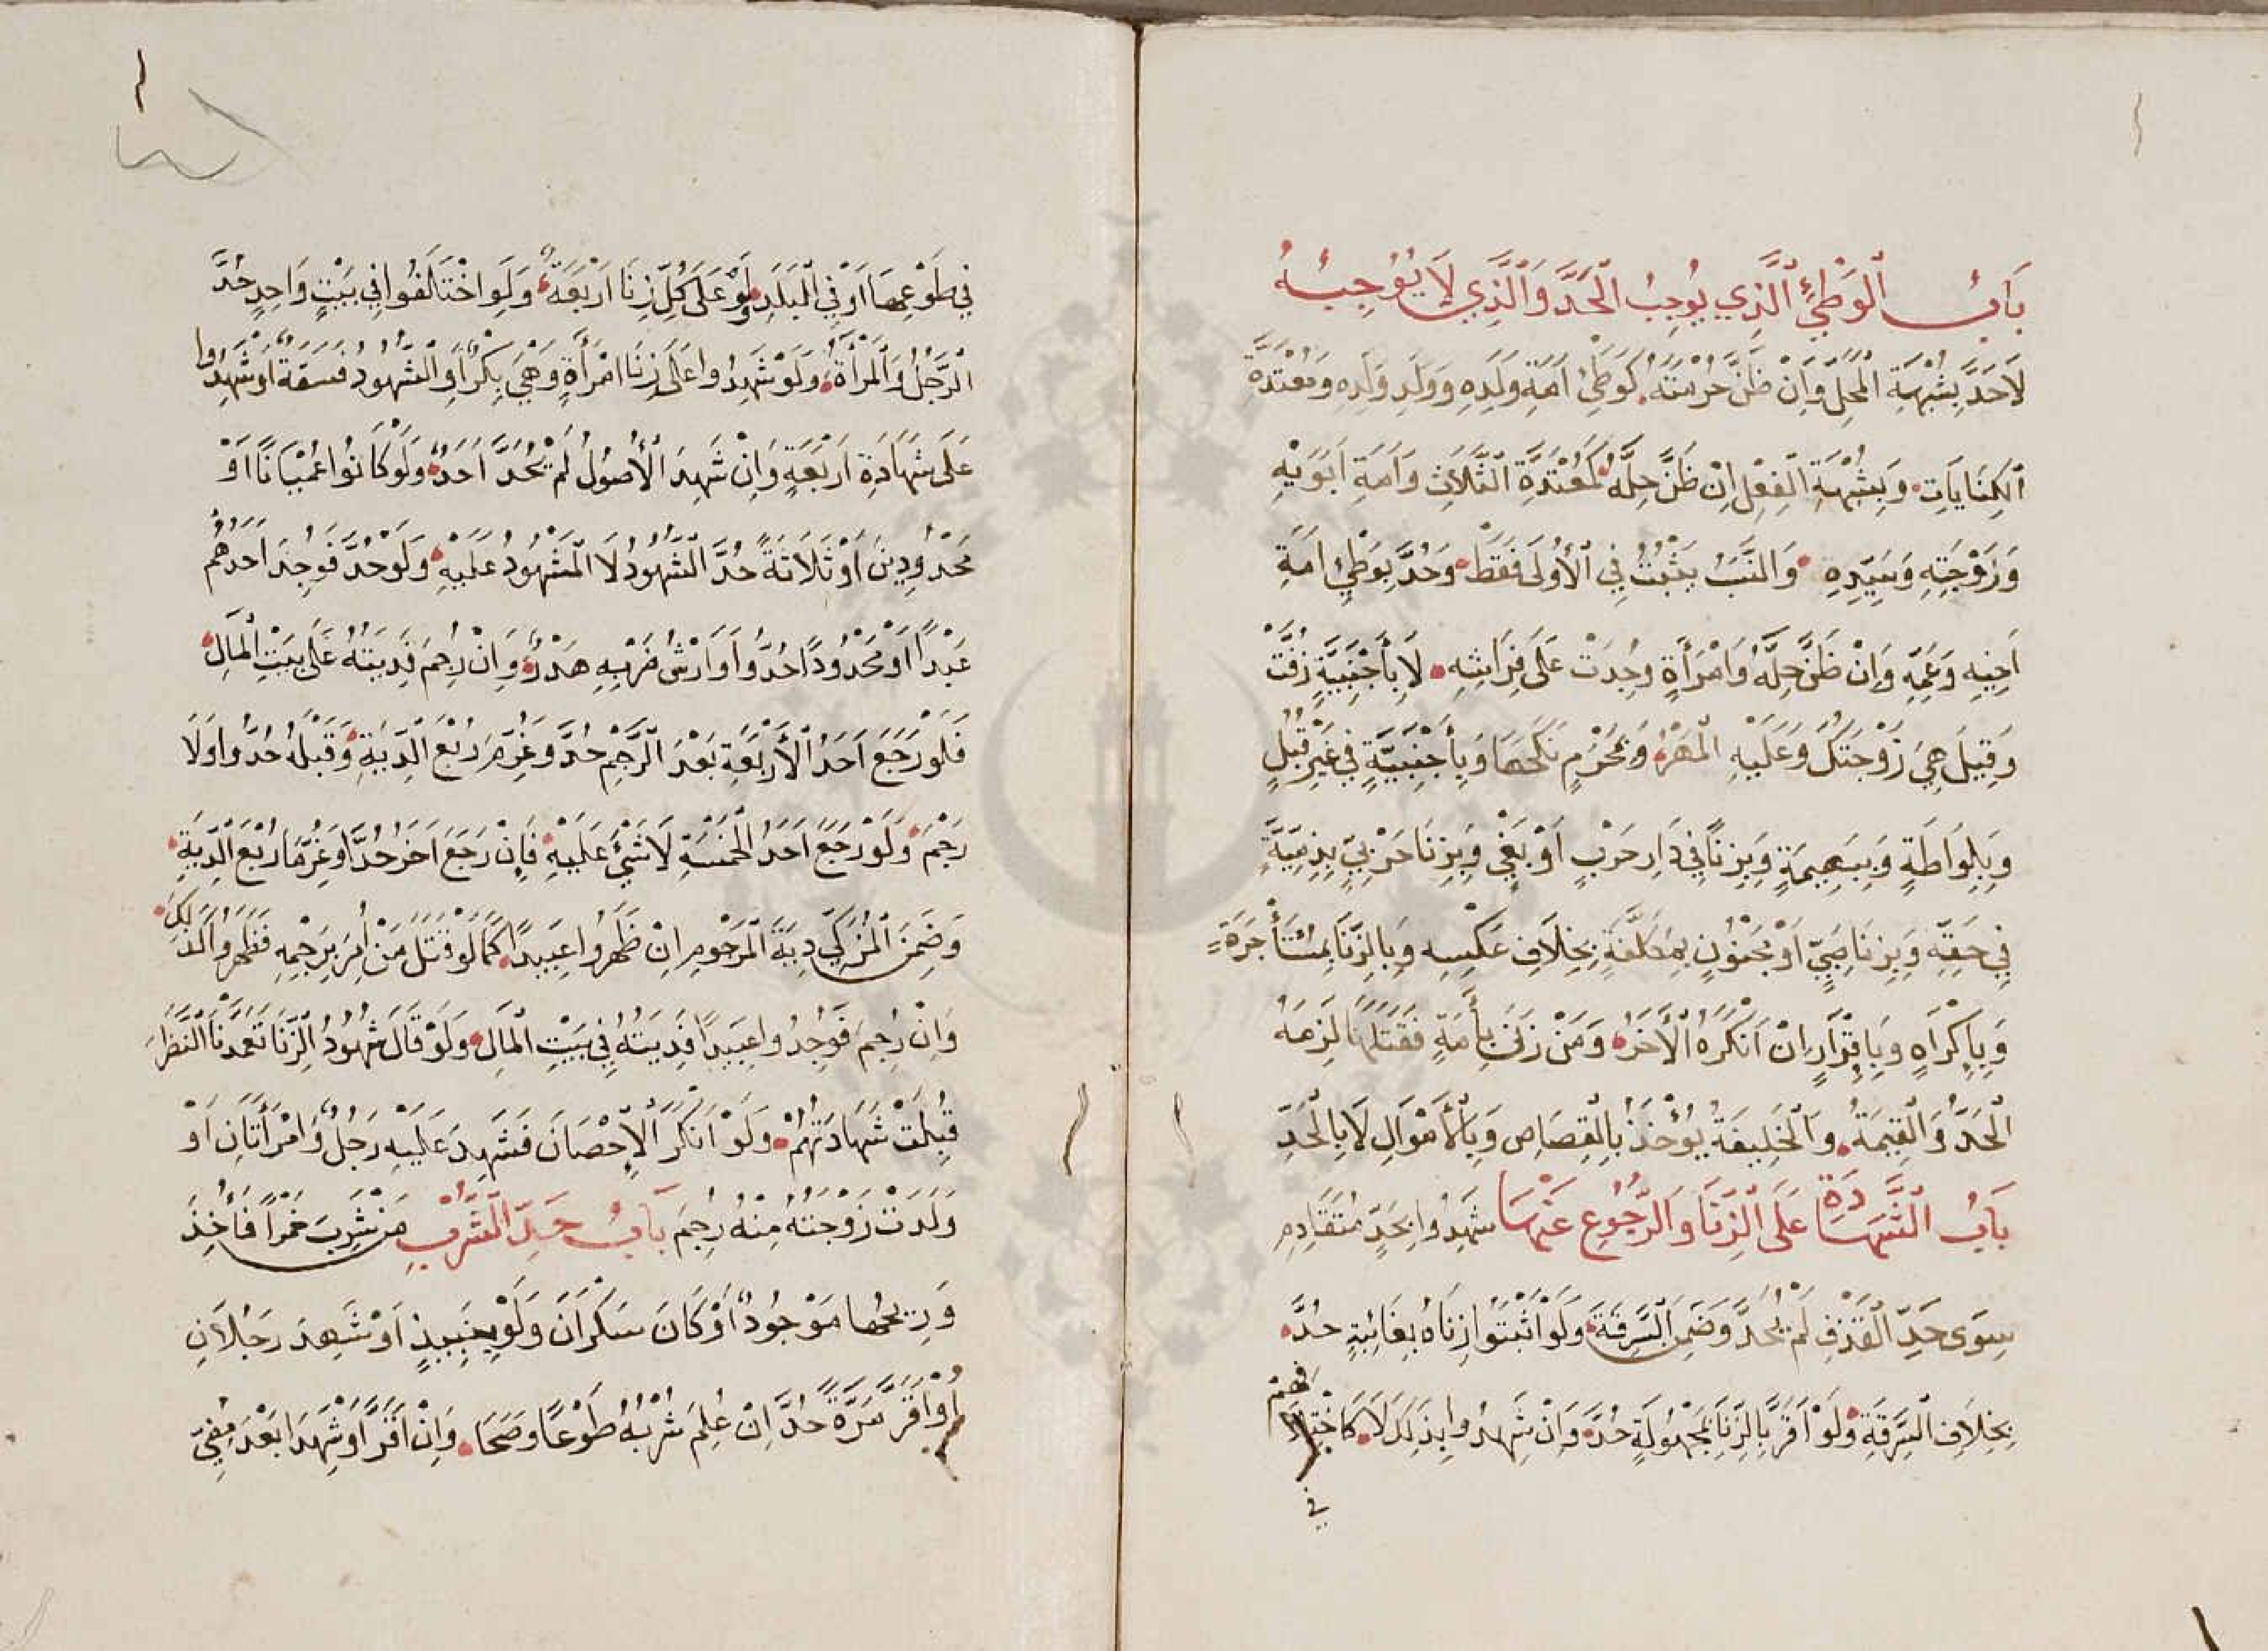 بَابُ الْوَطْئِ الَّذِي يُوجِبُ الْحَدَّ وَالَّذِي لَا يُوْجِبُهُ
لَا حَدَّ بِشُبْهَةِ الْمَحَلِّ وَاِنْ ظَنَّ حُرْمَتَهُ كَوَطْئِ اَمَةِ وَلَدِهِ وَوَلَدِ وَلَدِهِ وَمُعْتَدَّةِ
الْكِنَايَاتِ وَبِشُبْهَةِ الْفِعْلِ اِنْ ظَنَّ حِلَّهُ كَمُعْتَدَّةِ الثَّلَاثِ وَاَمَةِ اَبَوَيْهِ
وَزَوْجَتِهِ وَسَيِّدِهِ وَالنَّسَبُ يَثْبُتُ فِي الْاُولَى فَقَطْ وَحُدَّ بِوَطْئِ اَمَةِ
اَخِيهِ وَعَمِّهِ وَاِنْ ظَنَّ حِلَّهُ وَامْرَأَةٍ وُجِدَتْ عَلَى فِرَاشِهِ لَا بِأَجْنَبِيَّةٍ زُفَّتْ
وَقِيلَ هِيَ زَوْجَتُكَ وَعَلَيْهِ الْمَهْرُ وَمَحْرَمٍ نَكَحَهَا وَبِأَجْنَبِيَّةٍ فِي غَيْرِ قُبُلٍ
وَبِلِوَاطَةٍ وَبِبَهِيمَةٍ وَبِزِنًا فِي دَارِ حَرْبٍ اَوْ بَغْيٍ وَبِزِنَا حَرْبِيٍّ بِذِمِّيَّةٍ
فِي حَقِّهِ وَبِزِنَا صَبِيٍّ اَوْ مَجْنُوْنٍ بِمُكَلَّفَةٍ بِخِلَافِ عَكْسِهِ وَبِالزِّنَا بِمُسْتَأْجَرَةٍ
وَبِاِكْرَاهٍ وَبِاِقْرَارٍ اِنْ اَنْكَرَهُ الْاٰخَرُ وَمَنْ زَنَى بِأَمَةٍ فَقَتَلَهَا لَزِمَهُ
الْحَدُّ وَالْقِيمَةُ وَالْخَلِيفَةُ يُؤْخَذُ بِالْقِصَاصِ وَبِالْاَمْوَالِ لَا بِالْحَدِّ
بَابُ الشَّهَادَةِ عَلَى الزِّنَا وَالرُّجُوعِ عَنْهَا شَهِدُوا بِحَدٍّ مُتَقَادِمٍ
سِوَى حَدِّ الْقَذْفِ لَمْ يُحَدَّ وَضَمِنَ السَّرِقَةَ وَلَوْ اَثْبَتُوا زِنَاهُ بِغَائِبَةٍ حُدَّ
بِخِلَافِ السَّرِقَةِ وَلَوْ اَقَرَّ بِالزِّنَا بِمَجْهُولَةٍ حُدَّ وَاِنْ شَهِدُوا بِذَلِكَ لَا كَاخْتِلَافِهِمْ
في
فِي طَوْعِهَا اَوْ فِي الْبَلَدِ وَلَوْ عَلَى كُلِّ زِنَا اَرْبَعَةٌ وَلَوِ اخْتَلَفُوا فِي بَيْتٍ وَاحِدٍ حُدَّ
الرَّجُلُ وَالْمَرْأَةُ وَلَوْ شَهِدُوا عَلَى زِنَا امْرَأَةٍ وَهِيَ بِكْرٌ اَوِ الشُّهُودُ فَسَقَةٌ اَوْ شَهِدُوا
عَلَى شَهَادَةِ اَرْبَعَةٍ وَاِنْ شَهِدَ الْأُصُولُ لَمْ يُحَدَّ اَحَدٌ وَلَوْ كَانُوا عُمْيَانًا اَوْ
مَحْدُودِينَ اَوْ ثَلَاثَةً حُدَّ الشُّهُودُ لَا الْمَشْهُودُ عَلَيْهِ وَلَوْ حُدَّ فَوُجِدَ اَحَدُهُمْ
عَبْدًا اَوْ مَحْدُودًا حُدُّوا وَاَرْشُ ضَرْبِهِ هَدْرٌ وَاِنْ رُجِمَ فَدِيَتُهُ عَلَى بَيْتِ الْمَالِ
فَلَوْ رَجَعَ اَحَدُ الْأَرْبَعَةِ بَعْدَ الرَّجْمِ حُدَّ وَغُرِّمَ رُبْعَ الدِّيَةِ وَقَبْلَهُ حُدُّوا وَلَا
رَجْمَ وَلَوْ رَجَعَ اَحَدُ الْخَمْسَةِ لَا شَئَ عَلَيْهِ فَاِنْ رَجَعَ اٰخَرُ حُدَّا وَغُرِّمَا رُبْعَ الدِّيَةِ
وَضَمِنَ الْمُزَكِّي دِيَةَ الْمَرْجُومِ اِنْ ظَهَرُوا عَبِيدًا كَمَا لَوْ قَتَلَ مَنْ اُمِرَ بِرَجْمِهِ فَظَهَرُوا كَذَلِكَ
وَاِنْ رُجِمَ فَوُجِدُوا عَبِيدًا فَدِيَتُهُ فِي بَيْتِ الْمَالِ وَلَوْ قَالَ شُهُودُ الزِّنَا تَعَمَّدْنَا النَّظَرَ
قُبِلَتْ شَهَادَتُهُمْ وَلَوْ اَنْكَرَ الْاِحْصَانَ فَشَهِدَ عَلَيْهِ رَجُلٌ وَامْرَأَتَانِ اَوْ
وَلَدَتْ زَوْجَتُهُ مِنْهُ رُجِمَ بَابُ حَدِّ الشُّرْبِ مَنْ شَرِبَ خَمْرًا فَأُخِذَ
وَرِيحُهَا مَوْجُودٌ اَوْ كَانَ سَكْرَانَ وَلَوْ بِنَبِيذٍ اَوْ شَهِدَ رَجُلَانِ
اَوْ اَقَرَّ مَرَّةً حُدَّ اِنْ عُلِمَ شُرْبُهُ طَوْعًا وَصَحَا وَاِنْ اَقَرَّ اَوْ شَهِدَا بَعْدَ مُضِيِّ